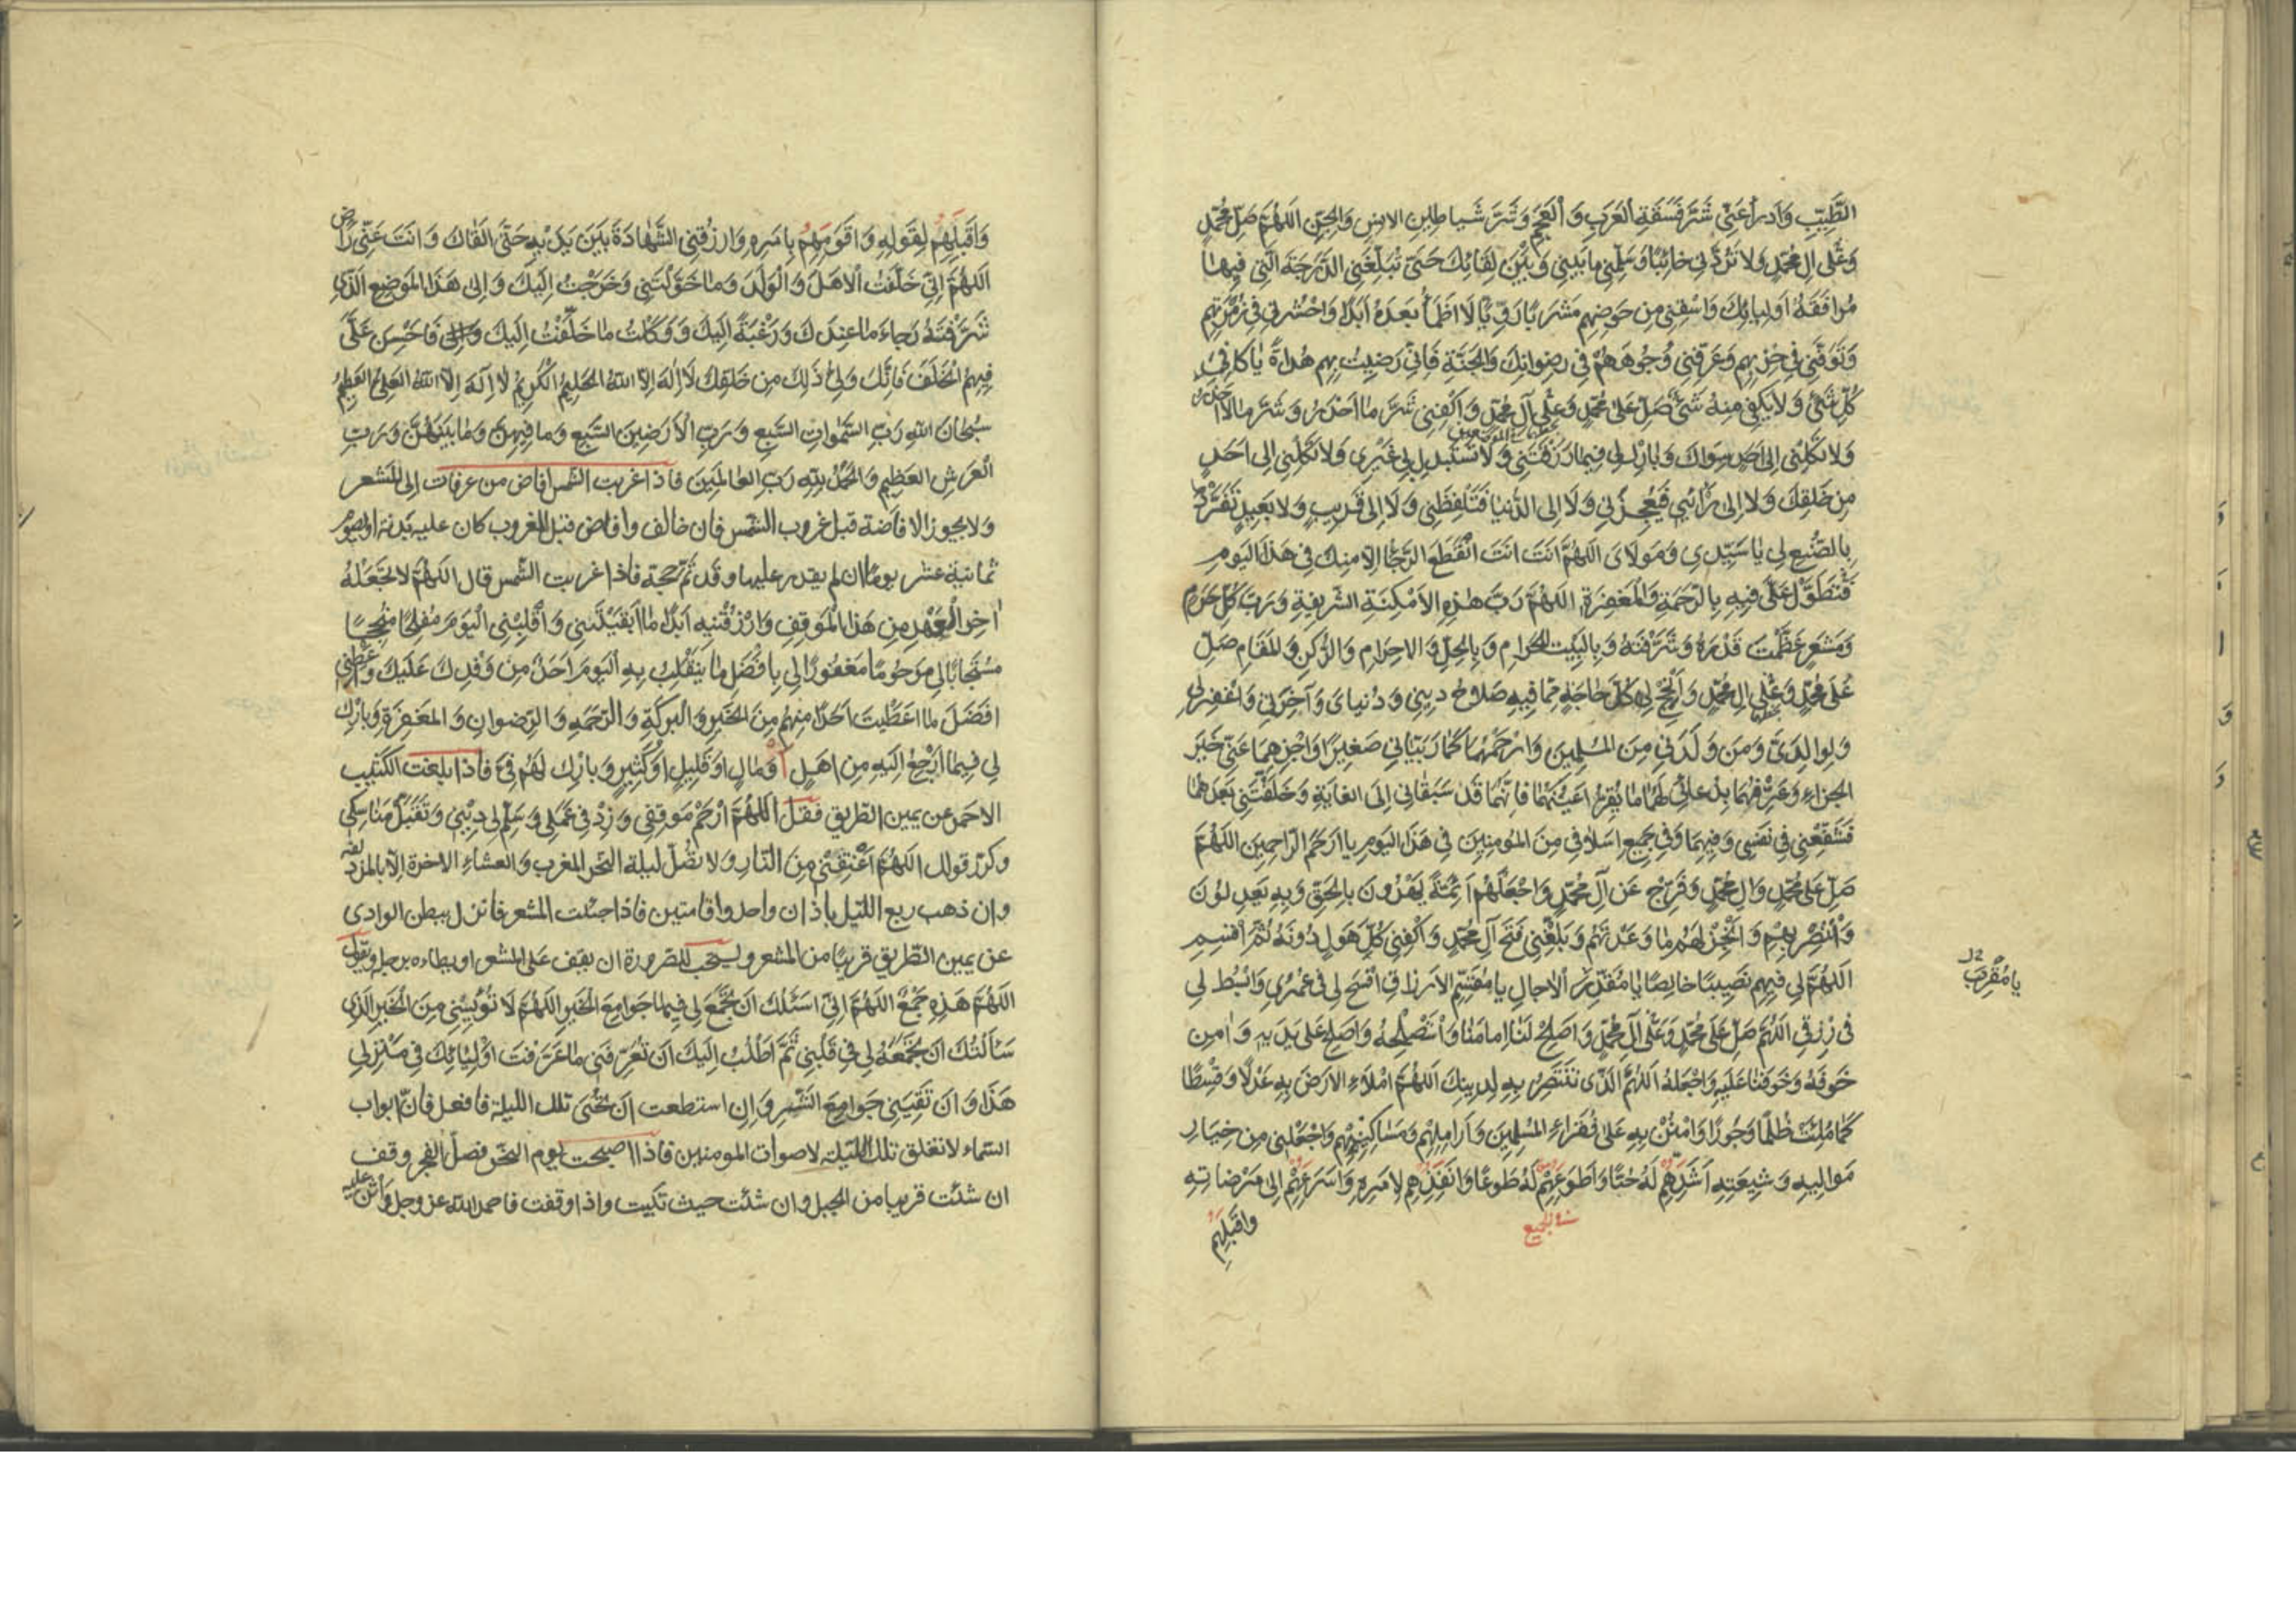 الطَّيِّبِ وَادرأ عَنِّي شَرَّ فَسَقَةِ العَرَبِ وَ العَجَمِ وَ شَرَّ شَياطِينِ الانسِ وَالجِنِّ اَللّهُمَّ صَلِّ مُحَمَّدٍ
وَعَلى الِ مُحَمَّدٍ وَلا تَرُدَّني خائِبًا وَسَلِّمني ما بَيني وَ بَيْنَ لِقائِكَ حَتّى تُبَلِّغَني الدَّرَجَةَ الَّتي فيها
مُرافَقَةُ اَوليائِكَ وَاسْقِني مِن حَوضِهِم مَشرَبًا رَوِيًّا لا اَظمَأُ بَعدَهُ اَبَدًا وَاحْشُرني في زُمرَتِهِم
وَتَوَفَّني في حِزبِهِم وَعَرِّفني وُجُوهَهُم في رِضوانِكَ وَالجَنَّةِ فَاِنّي رَضيتُ بِهِم هُداةً يا كافِيَ
كُلِّ شَيْءٍ وَ لا يَكفي مِنهُ شَيْءٌ صَلِّ عَلى مُحَمَّدٍ وَعَلى آلِ مُحَمَّدٍ وَاكْفِني شَرَّ ما اَحْذَرُ وَ شَرَّ ما لا اَحْذَرُ
وَلا تَكِلْني اِلى اَحَدٍ سِواكَ وَبارِك لي فيما رَزَقتَني وَ لا تَستَبدِل بي غَيْري وَلا تَكِلْني اِلى اَحَدٍ
مِن خَلقِكَ وَ لا اِلى رَأيي فَيُعْجِزَني وَ لا اِلى الدُّنيا فَتَلفِظَني وَ لا اِلى قَريبٍ وَ لا بَعيدٍ تَفَرَّدْ
بِالصُّنعِ لي يا سَيِّدي وَ مَولايَ اَللّهُمَّ اَنتَ اَنتَ انْقَطَعَ الرَّجاءُ اِلّا مِنكَ في هذَا اليَومِ
فَتَطَوَّل عَلَيَّ فيهِ بِالرَّحمَةِ وَالمَغفِرَةِ اَللّهُمَّ رَبَّ هذِهِ الاَمكِنَةِ الشَّريفَةِ وَ رَبَّ كُلِّ حَرَمٍ
وَمَشعَرٍ عَظَّمتَ قَدرَهُ وَ شَرَّفتَهُ وَ بِالبَيتِ الحَرامِ وَ بِالحِلِّ وَ الاحرامِ وَ الرُّكنِ وَ المَقامِ صَلِّ
عَلى مُحَمَّدٍ وَعَلى الِ مُحَمَّدٍ وَ اَنْجِحْ لي كُلَّ حاجَةٍ مِمّا فيهِ صَلاحُ ديني وَ دُنيايَ وَ آخِرَتي وَ اغفِر لي
وَ لِوالِدَيَّ وَ مَن وَلَدَني مِنَ المُسلِمينَ وَ ارْحَمْهُما كَما رَبَّياني صَغيرًا وَ اجْزِهِما عَنّي خَيرَ
الجَزاءِ وَ عَرِّفهُما بِدُعائي لَهُما ما يُقِرُّ اَعْيُنَهُما فَاِنَّهُما قَد سَبَقاني اِلَى الغايَةِ وَ خَلَّفتَني بَعدَهُما
فَشَفِّعْني في نَفسي وَ فيهِما وَ في جَميعِ اَسلافي مِنَ المُومِنينَ في هذَا اليَومِ يا اَرحَمَ الرّاحِمينَ اَللّهُمَّ
صَلِّ عَلى مُحَمَّدٍ وَالِ مُحَمَّدٍ وَ فَرِّجْ عَن آلِ مُحَمَّدٍ وَ اجْعَلْهُم اَئِمَّةً يَهدُونَ بِالحَقِّ وَ بِهِ يَعدِلونَ
وَ انْتَصِرْ بِهِم وَ اَنْجِزْ لَهُم ما وَعَدتَهُم وَ بَلِّغْني فَتحَ آلِ مُحَمَّدٍ وَ اكْفِني كُلَّ هَولٍ دُونَهُ ثُمَّ اَقسِم
اَللّهُمَّ لي فيهِم نَصيبًا خالِصًا يا مُقَدِّرَ الآجالِ يا مُقَسِّمَ الاَرزاقِ افْسَحْ لي في عُمُري وَ ابْسُط لي
يا مُقَرِّبَ
في رِزقي اَللّهُمَّ صَلِّ عَلى مُحَمَّدٍ وَعَلى آلِ مُحَمَّدٍ وَ اَصلِحْ لَنا اِمامَنا وَ اسْتَصْلِحْهُ وَ اَصلِح عَلى يَدَيهِ وَ امِن
خَوفَهُ وَ خَوفَنا عَلَيهِ وَ اجْعَلهُ اَللّهُمَّ الَّذي تَنتَصِرُ بِهِ لِدينِكَ اَللّهُمَّ امْلَاءِ الاَرضَ بِهِ عَدلًا وَ قِسطًا
كَما مُلِئَت ظُلمًا وَ جَورًا وَ امْنُنْ بِهِ عَلى فُقَراءِ المُسلِمينَ وَ اَرامِلِهِم وَ مَساكينِهِم وَ اجْعَلْني مِن خِيارِ
مَواليهِ وَ شيعَتِهِ اَشَدِّهِم لَهُ حُبًّا وَ اَطوَعِهِم لَهُ طَوعًا وَ اَنفَذِهِم لِاَمرِهِ وَ اَسرَعِهِم اِلى مَرضاتِهِ
وَاقبَلِهِم
وَاَقبَلِهِم لِقَولِهِ وَ اَقوَمِهِم بِاَمرِهِ وَ ارزُقني الشَّهادَةَ بَينَ يَدَيهِ حَتّى اَلقاكَ وَ اَنتَ عَنّي راضٍ
اَللّهُمَّ اِنّي خَلَّفتُ الاَهلَ وَ الوَلَدَ وَ ما خَوَّلتَني وَ خَرَجتُ اِلَيكَ وَ اِلى هذَا المَوضِعِ الَّذي
شَرَّفتَهُ رَجاءَ ما عِندَكَ وَ رَغبَةً اِلَيكَ وَ وَكَلتُ ما خَلَّفتُ اِلَيكَ فَاَحْسِن عَلَيَّ
فيهِم الخَلَفَ فَاِنَّكَ وَلِيُّ ذلِكَ مِن خَلقِكَ لا اِلهَ اِلّا اللهُ الحَليمُ الكَريمُ لا اِلهَ اِلّا اللهُ العَلِيُّ العَظيمُ
سُبحانَ اللهِ رَبِّ السَّمواتِ السَّبعِ وَ رَبِّ الاَرَضينَ السَّبعِ وَ ما فيهِنَّ وَ ما بَينَهُنَّ وَ رَبِّ
العَرشِ العَظيمِ وَ الحَمدُ لِلّهِ رَبِّ العالَمينَ فاذا غربت الشمس افاض من عرفات الى المشعر
ولا يجوز الافاضة قبل غروب الشمس فان خالف وافاض قبل الغروب كان عليه بدنة او يصوم
ثمانية عشر يوما ان لم يقدر عليها و قد تم حجة فاذا غربت الشمس قال اَللّهُمَّ لا تَجعَلهُ
اخِرَ العَهدِ مِن هذَا المَوقِفِ وَ ارْزُقنيهِ اَبَدًا ما اَبقَيتَني وَ اقلِبْني اليَومَ مُفلِحًا مُنجِحًا
مُستَجابًا لي مَرحُومًا مَغفُورًا لي بِاَفضَلِ ما يَنقَلِبُ بِهِ اليَومَ اَحَدٌ مِن وَفدِكَ عَلَيكَ وَ اَعْطِني
اَفضَلَ ما اَعطَيتَ اَحَدًا مِنهُم مِنَ الخَيرِ وَ البَرَكَةِ وَ الرَّحمَةِ وَ الرِّضوانِ وَ المَغفِرَةِ وَ بارِك
لي فيما اَرجِعُ اِلَيهِ مِن اَهلٍ اَو مالٍ اَو قَليلٍ اَو كَثيرٍ وَ بارِك لَهُم فِيَّ فاذا بلغت الكثيب
الاحمر عن يمين الطريق فقل اَللّهُمَّ ارْحَمْ مَوقِفي وَ زِدْ في عَمَلي وَ سَلِّم لي ديني وَ تَقَبَّلْ مَناسِكي
وكرّر قولك اَللّهُمَّ اَعْتِقْني مِنَ النّارِ ولا تصلّ ليلة النحر المغرب والعشاء الاخرة الّا بالمزدلفه
وان ذهب ربع الليل باذان واحد واقامتين فاذا جئت المشعر فانزل ببطن الوادي
عن يمين الطريق قريبًا من المشعر ويستحب للصرورة ان يقف على المشعر او يطاءه برجله ويقول
اَللّهُمَّ هذِهِ جَمْعٌ اَللّهُمَّ اِنّي اَسئَلُكَ اَن تَجْمَعَ لي فيها جَوامِعَ الخَيرِ اَللّهُمَّ لا تُؤيِسْني مِنَ الخَيرِ الَّذي
سَاَلتُكَ اَن تَجمَعَهُ لي في قَلبي ثُمَّ اَطلُبُ اِلَيكَ اَن تُعَرِّفَني ما عَرَّفتَ اَوليائَكَ في مَنزِلي
هذا وَ اَن تَقِيَني جَوامِعَ الشَّرِّ وان استطعت ان تحيى تلك الليلة فافعل فانّ ابواب
السماء لا تغلق تلك الليلة لاصوات المومنين فاذا اصبحت يوم النحر فصلّ الفجر وقف
ان شئت قريبا من الجبل وان شئت حيث تكيت واذا وقفت فاحمد الله عز وجل واثن عليه